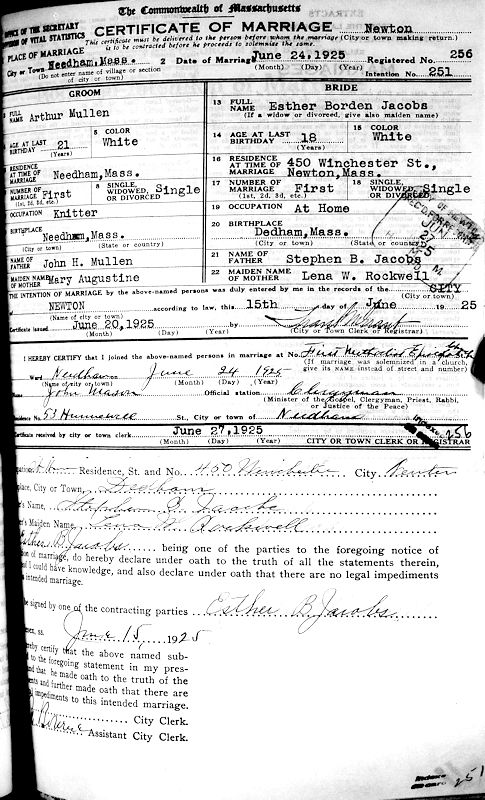 The Commonwealth of Massachusetts
OFFICE OF THE SECRETARY
DIVISION OF VITAL STATISTICS
CERTIFICATE OF MARRIAGE
Newton
This certificate must be delivered to the person before whom the marriage is to be contracted before he proceeds to solemnize the same.
(City or town making return.)
PLACE OF MARRIAGE
City or Town Needham, Mass.
(Do not enter name of village or section of city or town)
2 Date of Marriage June 24, 1925
(Month) (Day) (Year)
Registered No. 256
Intention No. 251
GROOM
FULL NAME Arthur Mullen
AGE AT LAST BIRTHDAY 21 (Years)
5 COLOR White
RESIDENCE AT TIME OF MARRIAGE Needham, Mass.
NUMBER OF MARRIAGE First (1st, 2d, 3d, etc.)
8 SINGLE, WIDOWED, OR DIVORCED Single
OCCUPATION Knitter
BIRTHPLACE Needham, Mass.
(City or town) (State or country)
NAME OF FATHER John H. Mullen
MAIDEN NAME OF MOTHER Mary Augustine
BRIDE
13 FULL NAME Esther Borden Jacobs
(If a widow or divorced, give also maiden name)
14 AGE AT LAST BIRTHDAY 18 (Years)
15 COLOR White
16 RESIDENCE AT TIME OF MARRIAGE 450 Winchester St., Newton, Mass.
17 NUMBER OF MARRIAGE First (1st, 2d, 3d, etc.)
18 SINGLE, WIDOWED, OR DIVORCED Single
19 OCCUPATION At Home
20 BIRTHPLACE Dedham, Mass.
(City or town) (State or country)
21 NAME OF FATHER Stephen B. Jacobs
22 MAIDEN NAME OF MOTHER Lena W. Rockwell
THE INTENTION OF MARRIAGE by the above-named persons was duly entered by me in the records of the CITY
(City or town)
NEWTON according to law, this 15th day of June 1925
(Name of city or town)
Certificate issued June 20, 1925 by
(Month) (Day) (Year) (City or Town Clerk or Registrar)
I HEREBY CERTIFY that I joined the above-named persons in marriage at No. First Methodist Episcopal Ch
(If marriage was solemnized in a church, give its NAME instead of street and number)
Ward Needham June 24 1925
(Name of city or town) (Month) (Day) (Year)
Name John Mason Official station Clergyman
(Minister of the Gospel, Clergyman, Priest, Rabbi, or Justice of the Peace)
Residence No. 53 St., City or town of Needham
Certificate received by city or town clerk June 27, 1925
(Month) (Day) (Year) CITY OR TOWN CLERK OR REGISTRAR
256
Residence, St. and No. 450 Winchester City Newton
place, City or Town, Dedham
's Name, Stephen B. Jacobs
's Maiden Name Lena W. Rockwell
Esther B. Jacobs being one of the parties to the foregoing notice of
ion of marriage, do hereby declare under oath to the truth of all the statements therein,
I could have knowledge, and also declare under oath that there are no legal impediments
intended marriage.
be signed by one of the contracting parties Esther B. Jacobs
ss. June 15, 1925
certify that the above named sub-
to the foregoing statement in my pres-
and that he made oath to the truth of the
ents and further made oath that there are
l impediments to this intended marriage.
City Clerk.
Assistant City Clerk.
251